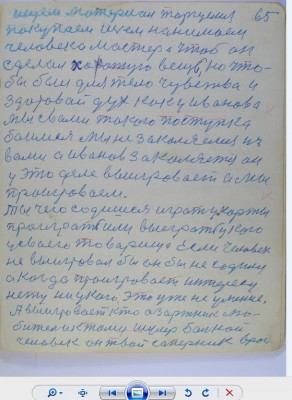 65
ищем материал торгуемся
покупаем ищем нанимаем
человека мастера чтоб он
сделал хорошую вещь, но что-
бы был для тело чувства и
здоровай дух как у иванова
мы с вами такого поступка
боимся мы не закаляемся
вами а иванов закаляется он
у это деле выигровает а мы
проигроваем.
Ты чего содишся играть у карты
проиграть или выеграть у кого
у своего товарища Если человек
не выигровал бы он бы не содился
а когда проигровает интересу
нету ни у кого. Это уже не умение.
А выигровает кто азартник лю-
битель к тому шулер
человек он твой саперник враг